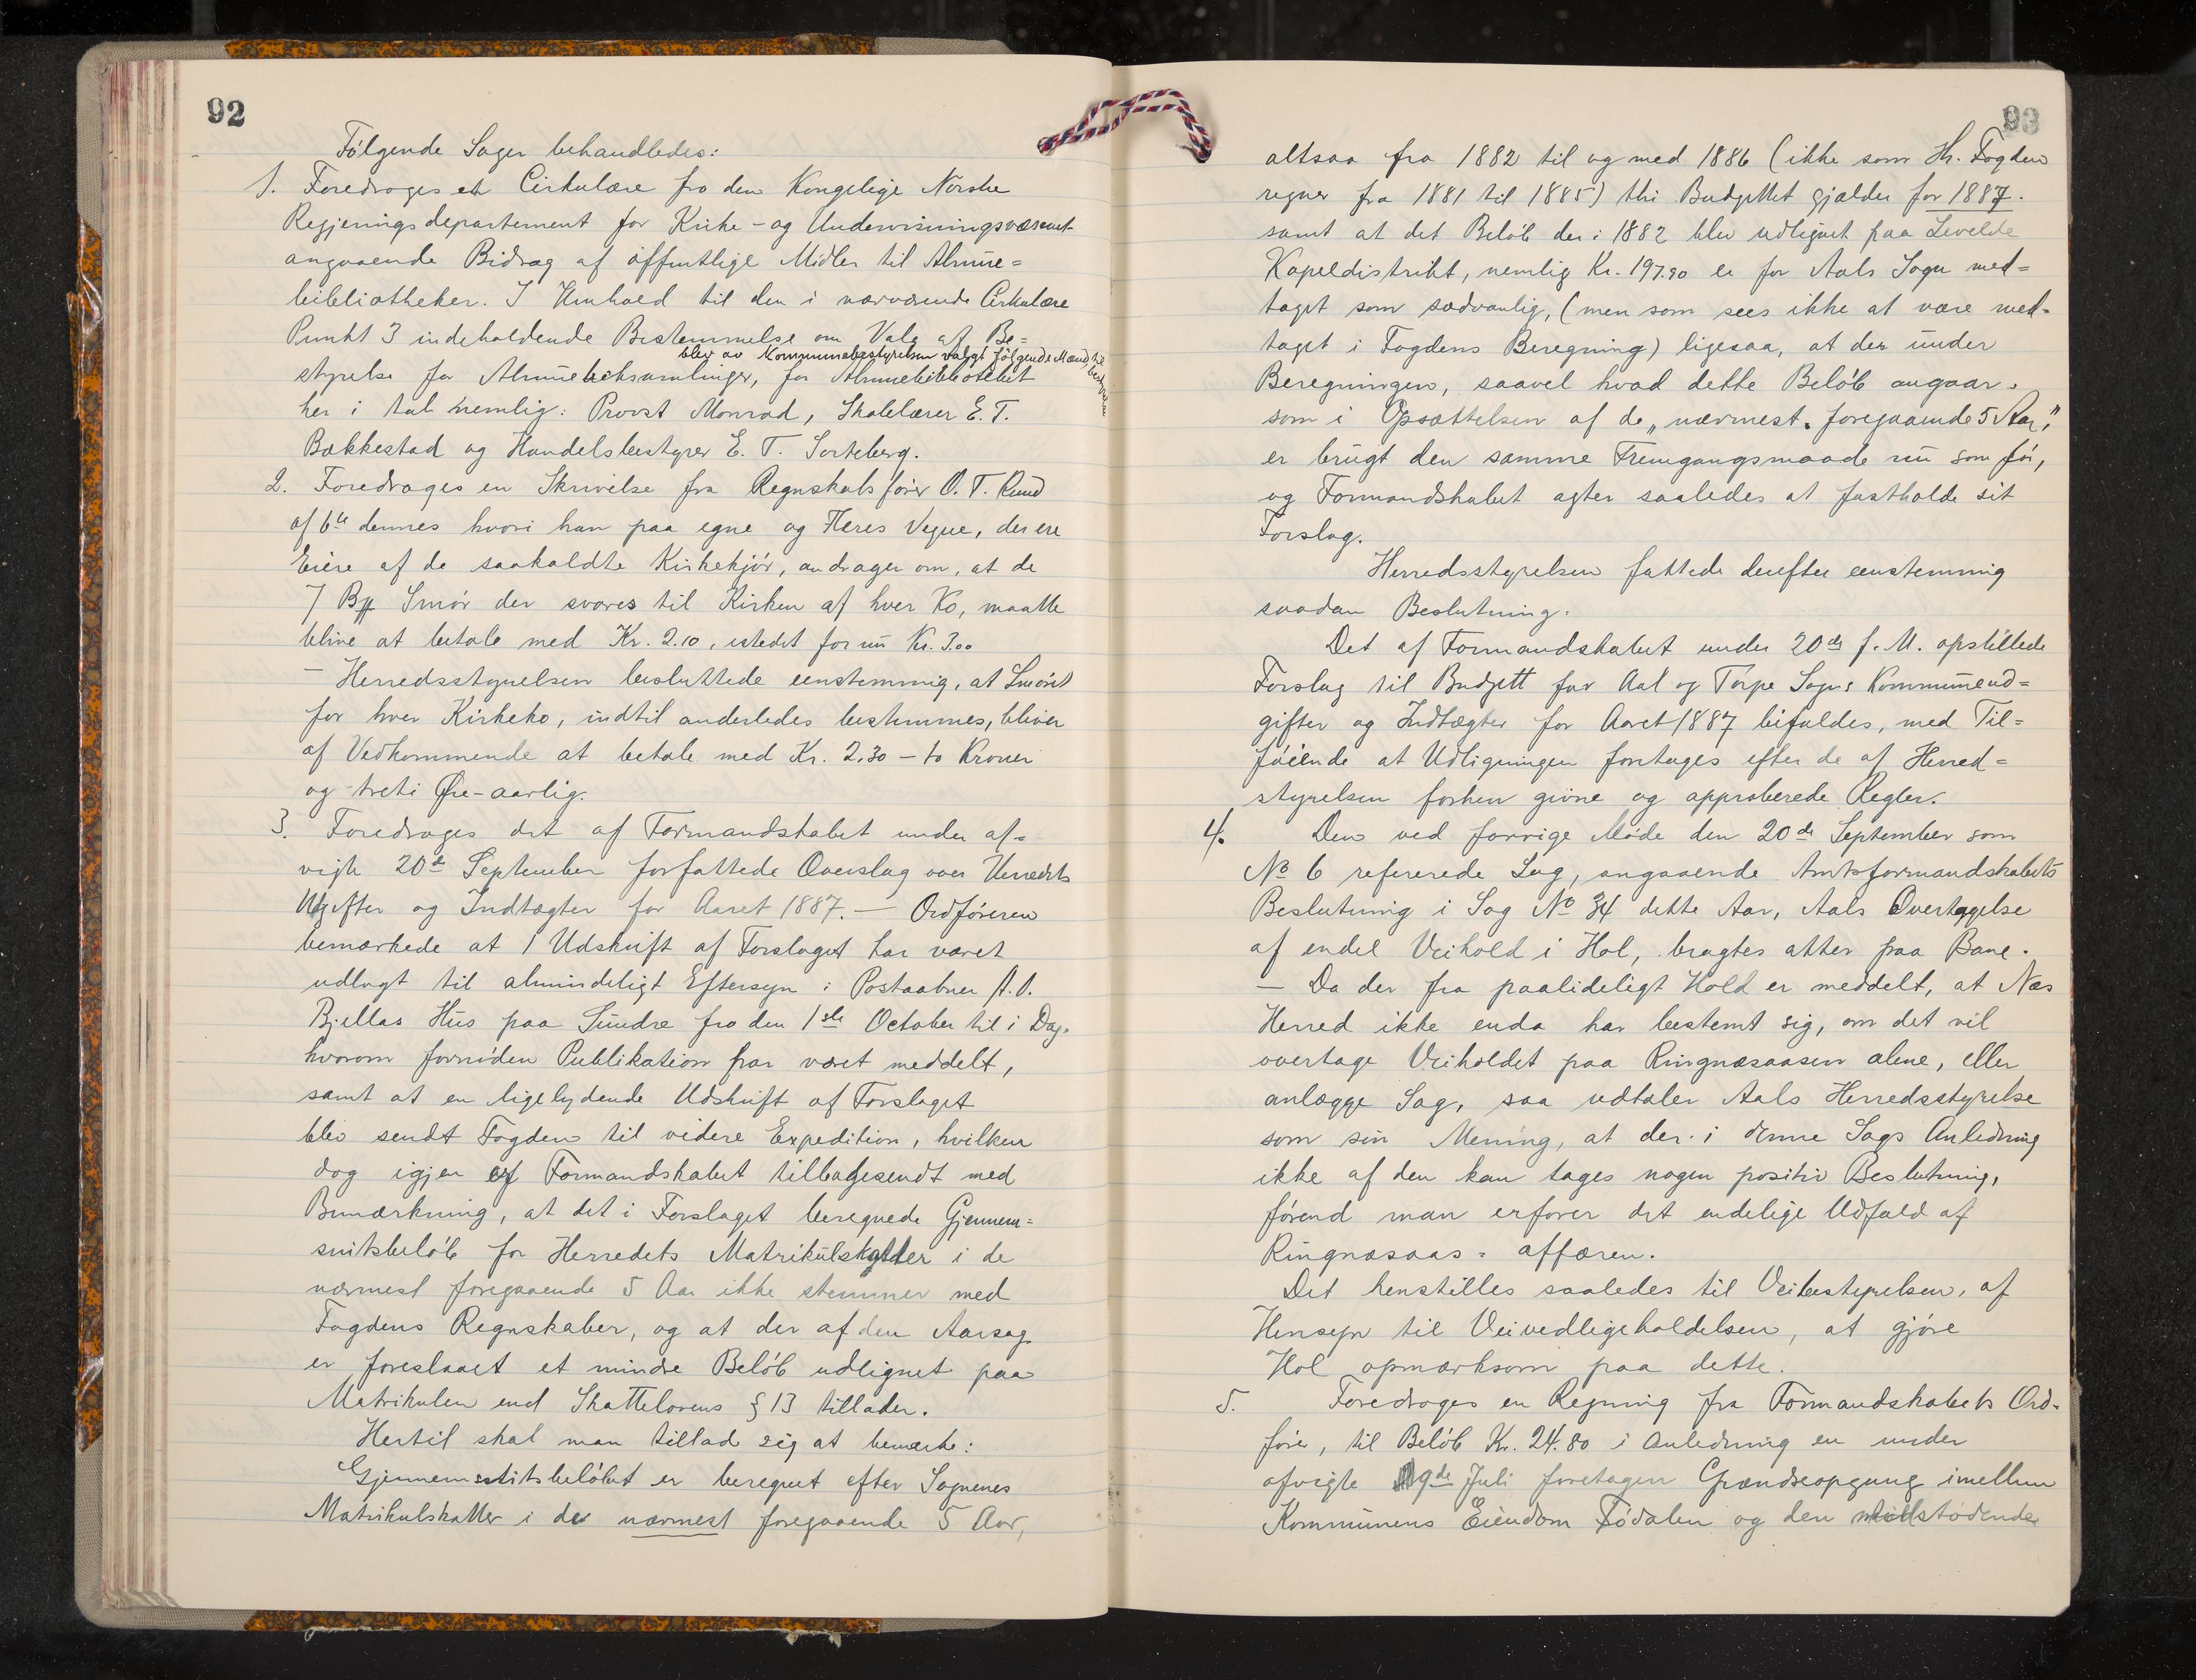 92
Følgende Sager behandledes:
1. Foredroges et Cirkulære fra den Kongelige Norske
Regjeringsdepartement for Kirke- og Undervisningsvæsenet
angaaende Bidrag af offentlige Midler til Almue=
bibliotheker. I Henhold til den i nærværende Cirkulære
Punkt 3 indeholdende Bestemmelse om Valg af Be=
blev av Kommunebestyrelsen valgt følgende Mænd til bestyrere
styrelse for Almueboksamlinger, for Almuebibliotheket
her i Aal nemlig: Provst Monrad, Skolelærer E. T.
Bakkestad og Handelsbestyrer E. T. Sorteberg.
2. Foredroges en Skrivelse fra Regnskabsfører O. T. Ruud
af 6te dennes hvori han paa egne og Fleres Vegne, der ere
Eiere af de saakaldte Kirkekjør, andrager om, at de
7 Bpf Smør der svares til Kirken af hver Ko, maatte
blive at betale med Kr. 2.10, istedet for nu Kr. 3.00
— Herredsstyrelsen besluttede eenstemmig, at Smøret
for hver Kirkeko, indtil anderledes bestemmes, bliver
af Vedkommende at betale med Kr. 2.30 – to Kroner
og treti Øre – aarlig.
3. Foredroges det af Formandskabet under af=
vigte 20de September forfattede Overslag over Herredets
Udgifter og Indtægter for Aaret 1887. — Ordføreren
bemærkede at 1 Udskrift af Forslaget har været
udlagt til almindeligt Eftersyn i Postaabner A. O.
Bjellas Hus paa Sundre fra den 1ste October til i Dag.
hvorom fornøden Publikation har været meddelt,
samt at en ligelydende Udskrift af Forslaget
blev sendt Fogden til videre Expedition, hvilken
dog igjen af Formandskabet tilbagesendt med
Bemærkning, at det i Forslaget beregnede Gjennem=
snitsbeløb for Herredets Matrikulskatter i de
nærmest foregaaende 5 Aar ikke stemmer med
Fogdens Regnskaber, og at der af den Aarsag
er foreslaaet et mindre Beløb udlignet paa
Matrikulen end Skattelovens § 13 tillader.
Hertil skal man tillade sig at bemærke:
Gjennemsnitsbeløbet er beregnet efter Sognenes
Matrikulskatter i de nærmest foregaaende 5 Aar,
93
altsaa fra 1882 til og med 1886 (ikke som Hr. Fogden
regner fra 1881 til 1885) thi Budgettet gjælder for 1887.
samt at det Beløb der i 1882 blev udlignet paa Levelde
Kapeldistrikt, nemlig Kr. 197.90 er for Aals Sogn med=
taget som sædvanlig, (men som sees ikke at være med=
taget i Fogdens Beregning) ligesaa, at der under
Beregningen, saavel hvad dette Beløb angaar.
som i Opsættelsen af de „nærmest foregaaende 5 Aar,"
er brugt den samme Fremgangsmaade nu som før,
og Formandskabet agter saaledes at fastholde sit
Forslag.
Herredsstyrelsen fattede derefter eenstemmig
saadan Beslutning.
Det af Formandskabet under 20de f. M. opstillede
Forslag til Budgett for Aal og Torpe Sogns Kommuneud=
gifter og Indtægter for Aaret 1887 bifaldes, med Til=
føiende at Udligningen foretages efter de af Herred=
styrelsen forhen givne og approberede Regler.
4. Den ved forrige Møde den 20de September som
No 6 refererede Sag, angaaende Amtsformandskabets
Beslutning i Sag No 34 dette Aar, Aals Overtagelse
af endel Veihold i Hol, bragtes atter paa Bane.
— Da der fra paalideligt Hold er meddelt, at Næs
Herred ikke enda har bestemt sig, om det vil
overtage Veiholdet paa Ringnæsaasen alene, eller
anlægge Sag, saa udtaler Aals Herredsstyrelse
som sin Mening, at der i denne Sags Anledning
ikke af den kan tages nogen positiv Beslutning,
førend man erfarer det endelige Udfald af
Ringnæsaas=affæren.
Det henstilles saaledes til Veibestyrelsen, af
Hensyn til Veivedligeholdelsen, at gjøre
Hol opmærksom paa dette.
5. Foredroges en Regning fra Formandskabets Ord=
fører, til Beløb Kr. 24.80 i Anledning en under
afvigte 9de Juli foretagen Grændseopgang imellem
Kommunens Eiendom Fødalen og den tilstødende